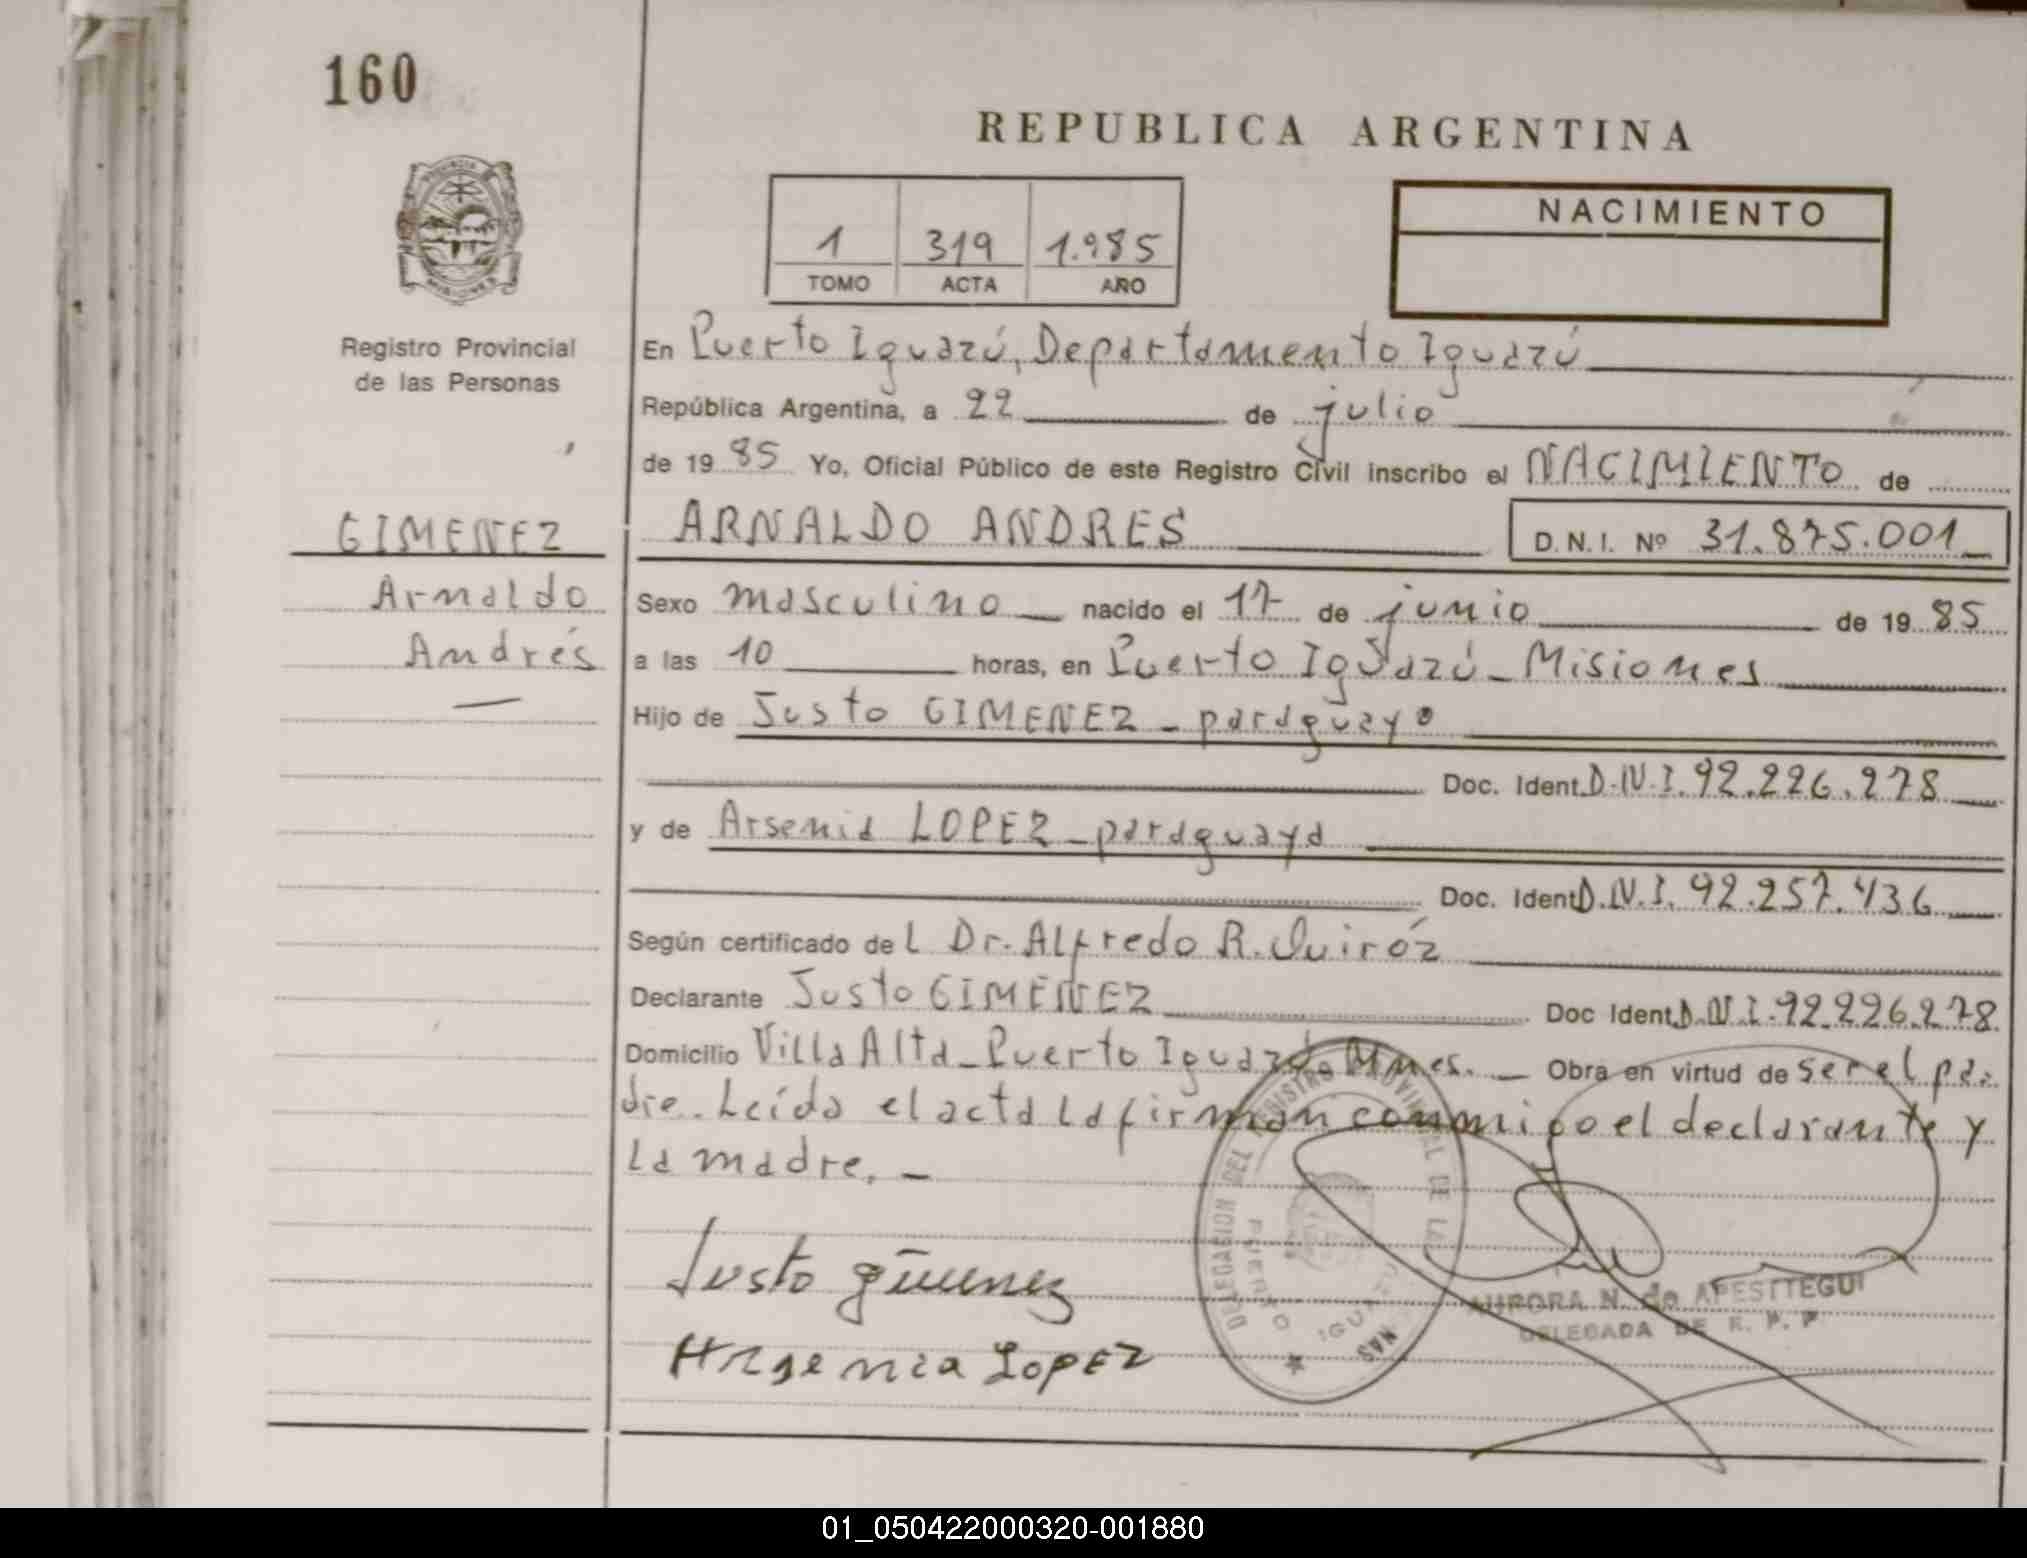 160
REPUBLICA ARGENTINA
PROVINCIA DE
MISIONES
1 319 1.985
TOMO ACTA AÑO
NACIMIENTO
Registro Provincial
de las Personas
En Puerto Iguazú, Departamento Iguazú
República Argentina, a 22 de julio
de 1985 Yo, Oficial Público de este Registro Civil inscribo el NACIMIENTO de
GIMENEZ
Arnaldo
Andrés
ARNALDO ANDRES D.N.I. Nº 31.875.001
Sexo masculino nacido el 17 de junio de 1985
a las 10 horas, en Puerto Iguazú - Misiones
Hijo de Justo GIMENEZ - paraguayo
Doc. Ident. D.N.I. 92.226.278
y de Arsenia LOPEZ - paraguaya
Doc. Ident D.N.I. 92.257.436
Según certificado del Dr. Alfredo R. Quiróz
Declarante Justo GIMENEZ Doc Ident. D.N.I. 92.226.278
Domicilio Villa Alta - Puerto Iguazú. Mnes. - Obra en virtud de ser el pa-
dre. Leída el acta la firman conmigo el declarante y
la madre. -
Justo gimenez
Arsenia Lopez
DELEGACION DEL REGISTRO PROVINCIAL DE LAS
PUERTO IGUAZU
AURORA N. de APESTTEGUI
DELEGADA DE R. P. P.
01_050422000320-001880